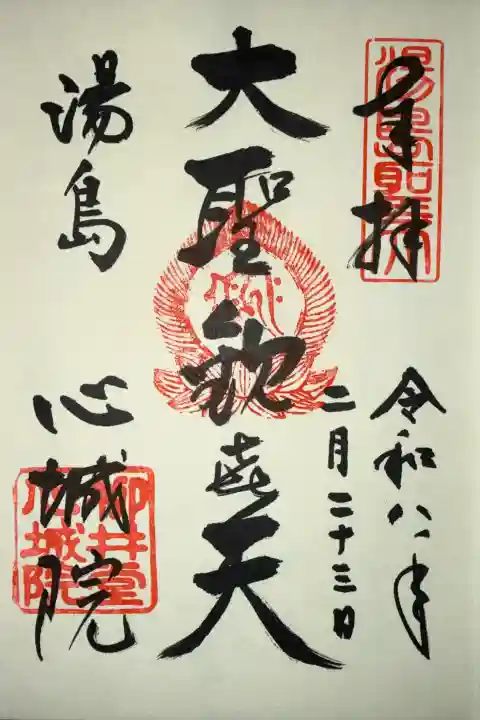 奉拝
令和八年
二月二十三日
大聖歓喜天
湯島
心城院
柳井堂
心城院